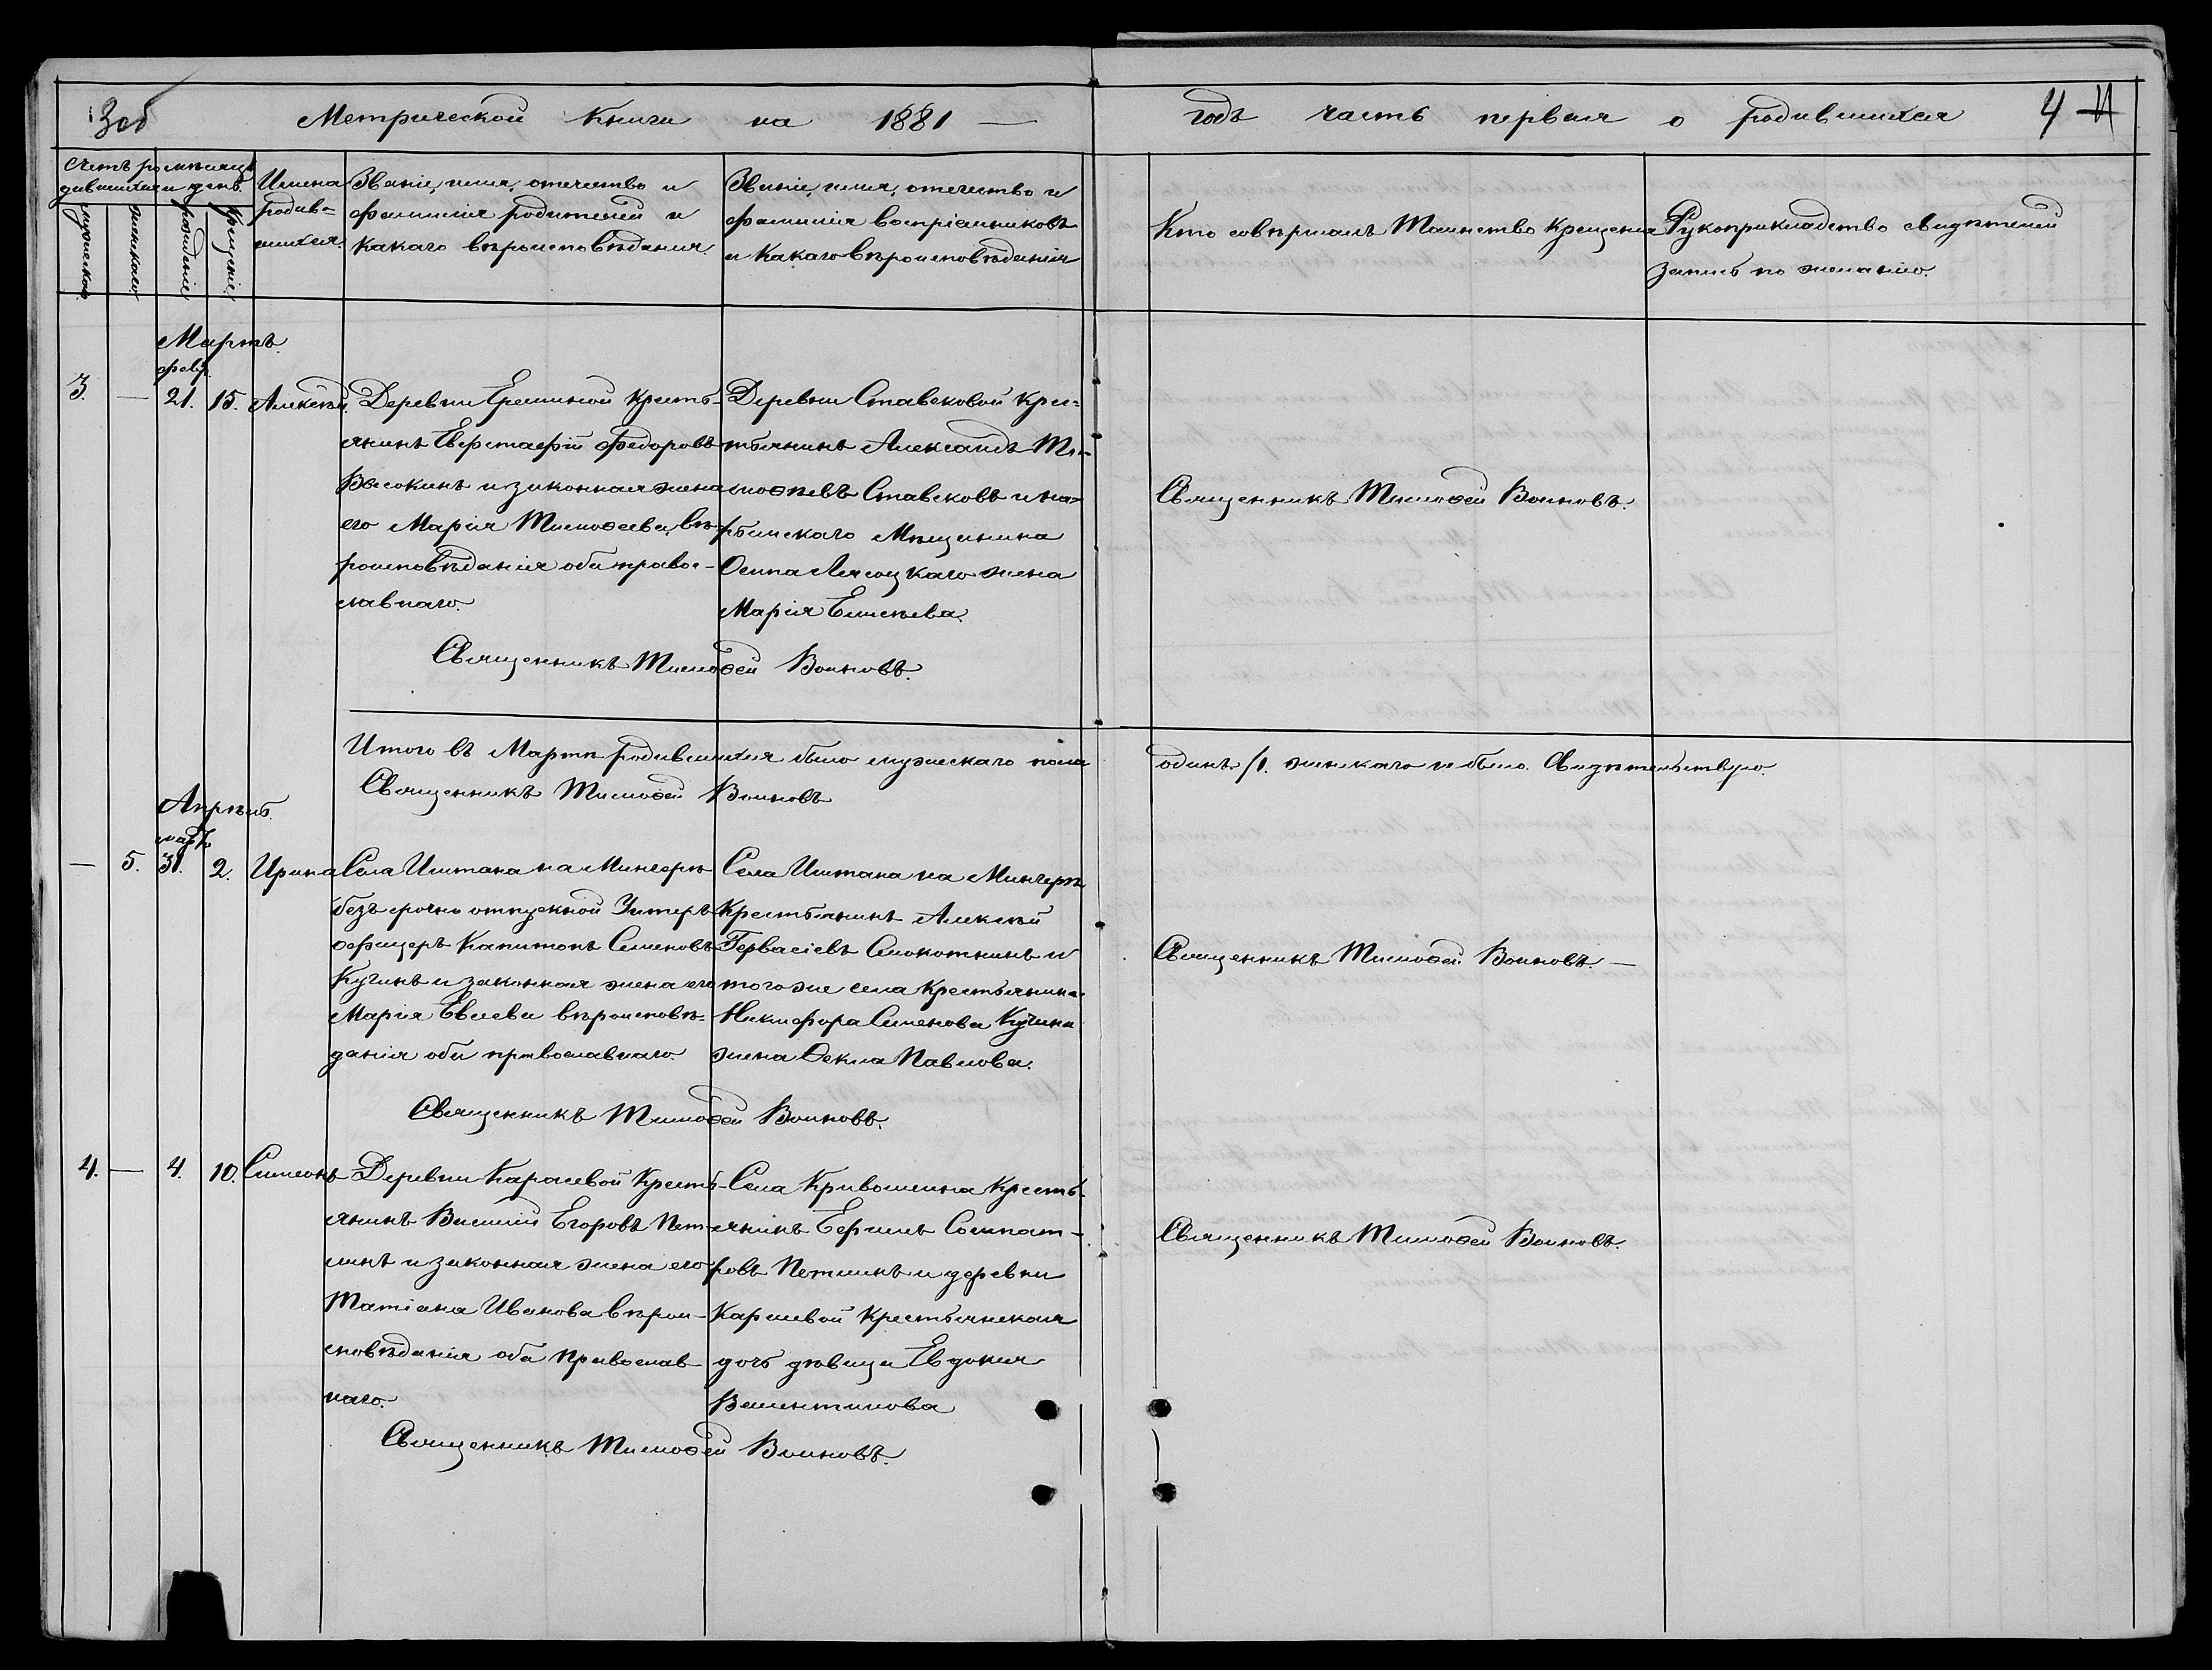 3об Метрической Книги на 1881 — годъ часть первая о родившихся 4
Счетъ родившихся
мужескаго
женскаго
мѣсяцъ и день
рожденіе
крещеніе
Имена родив=
шихся.
Званіе, имя, отечество и
фамилія родителей и
какаго вѣроисповѣданія.
Званіе, имя, отечество и
фамилія воспріемниковъ
и какаго вѣроисповѣданія
Кто совѣршалъ Таинство Крещенія
Рукоприкладство свидѣтелей
запись по желанію.
Мартъ.
февр.
3. — 21. 15. Алексѣй
Деревни Ереминой Кресть-
янинъ Евстафій Федоровъ
Высокинъ и законная жена
его Марія Тимоѳеева, вѣ-
роисповѣданія оба правос-
лавнаго.
Деревни Ставсковой Кре=
стьянинъ Александъ Ти-
моѳѣевъ Ставсковъ и на=
рымскаго Мѣщанина
Осипа Лясоцкаго жена
Марія Елисѣева.
Священникъ Тимоѳей Воиновъ.
Священникъ Тимоѳей Воиновъ.
Итого въ Мартѣ родившихся было мужескаго пола одинъ /1. женскаго не было. Свидѣтельствую.
Священникъ Тимоѳей Воиновъ
Апрѣль.
мартъ
— 5. 31. 2. Ирина
Села Иштана на Мингерѣ
безъ срочно отпускной Унтеръ
офицеръ Капитонъ Семеновъ
Кучинъ и законная жена его
Марія Евсеева вѣроисповѣ-
данія оба православнаго.
Села Иштана на Мингерѣ
Крестьянинъ Алексѣй
Гервасіевъ Смокотнинъ и
того же села Крестьянина
Никифора Семенова Кучина
жена Ѳекла Павлова.
Священникъ Тимоѳей Воиновъ. —
Священникъ Тимоѳей Воиновъ.
4. — 4. 10. Симеонъ
Деревни Карасевой Кресть-
янинъ Василій Егоровъ Пет-
линъ и законная жена его
Татіана Иванова вѣрои-
сповѣданія оба Православ
наго.
Села Кривошеина Кресть-
янинъ Ефимъ Сосипат-
ровъ Петлинъ и деревни
Карасевой Крестьянская
дочь дѣвица Евдокия
Валентинова
Священникъ Тимоѳей Воиновъ.
Священникъ Тимоѳей Воиновъ.